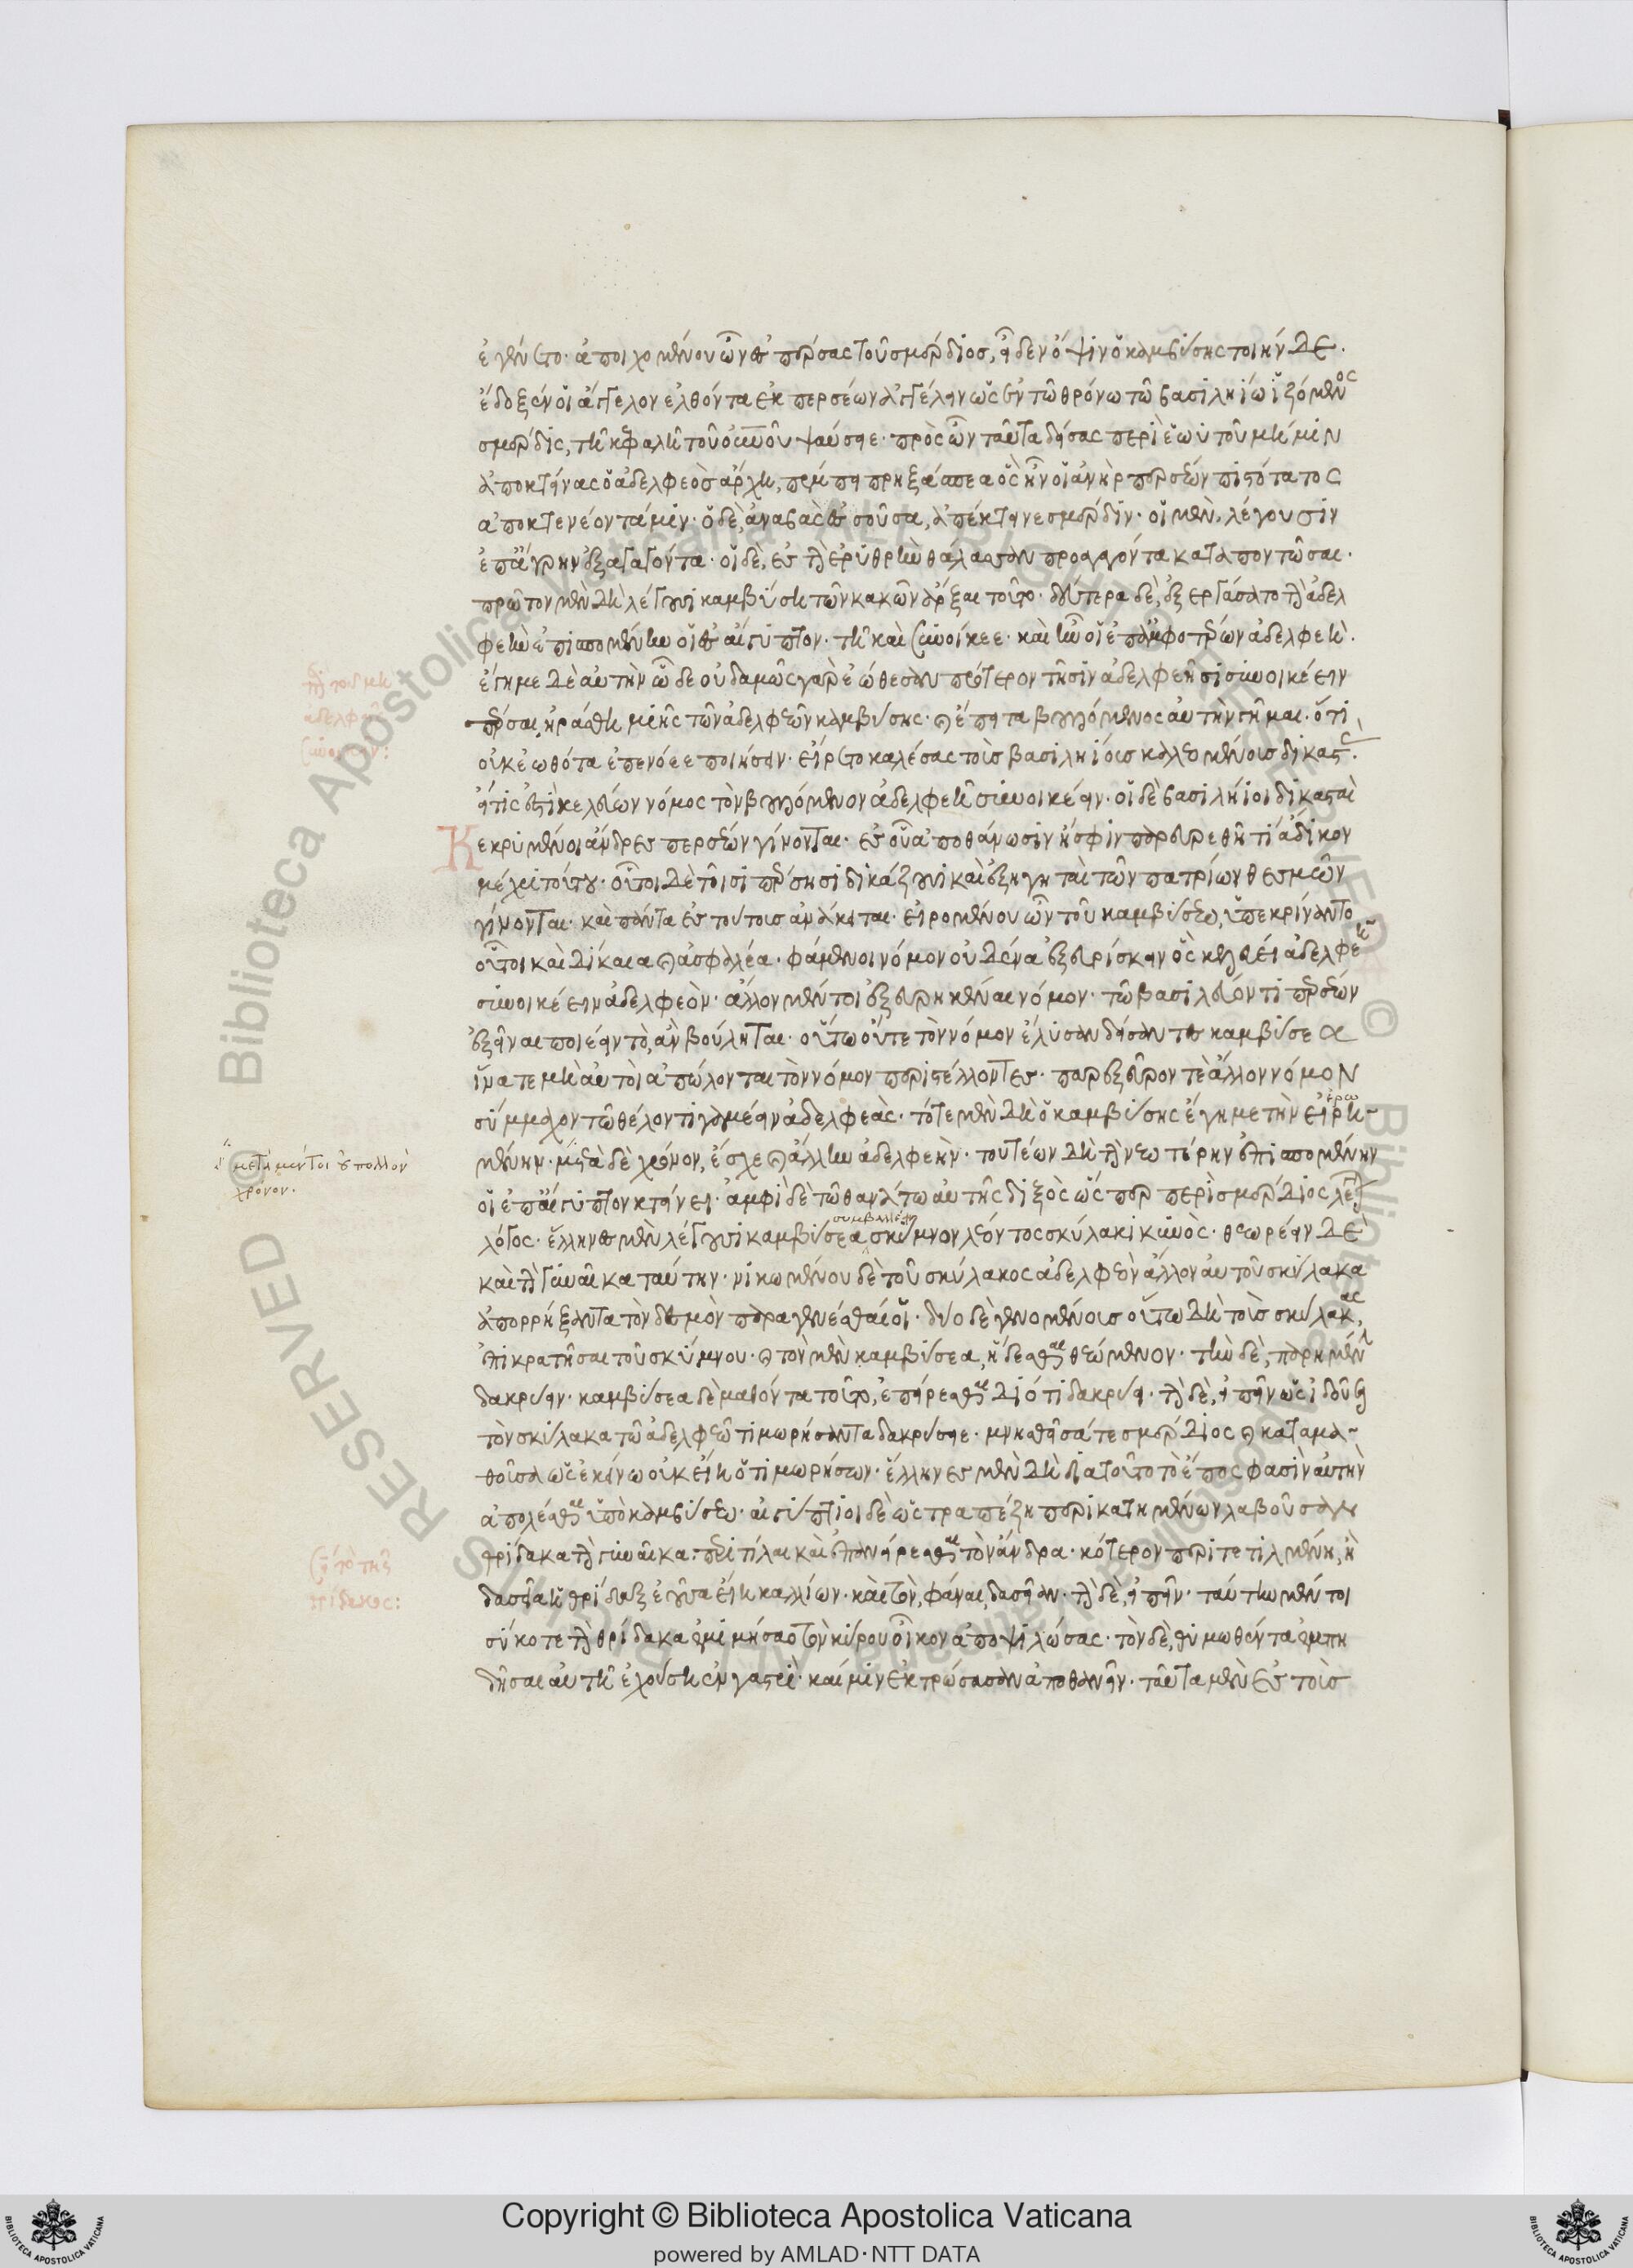 ἐγένετο· ἀποιχομένου ὦν ἐς πέρσας τοῦ σμέρδιος, εἶδεν ὄψιν ὁ καμβύσης τοιήνδε·
ἔδοξέν οἱ ἄγγελον ἐλθόντα ἐκ περσέων ἀγγέλλειν ὡς ἐν τῶ θρόνω τῶ βασιληίω ἱζόμενος
σμέρδις, τῆ κεφαλῆ τοῦ οὐρανοῦ ψαύσειε· πρὸς ὦν ταῦτα δείσας περὶ ἑωυτοῦ μή μιν
ἀποκτείνας ὁ ἀδελφεὸς ἄρχη, πέμπει πρηξάσπεα ὃς ἦν οἱ ἀνὴρ περσέων πιστότατος
ἀποκτενέοντά μιν· ὁ δὲ, ἀναβὰς ἐς σοῦσα, ἀπέκτεινε σμέρδιν· οἱ μὲν, λέγουσιν
ἐπ' ἄγρην ἐξαγαγόντα· οἱ δὲ, ἐς τὴν ἐρυθρὴν θάλασσαν προαγαγόντα καταποντῶσαι·
πρῶτον μὲν δὴ λέγουσι καμβύση τῶν κακῶν ἄρξαι τοῦτο· δεύτερα δὲ, ἐξεργάσατο τὴν ἀδελ
φεὴν ἐπισπομένην οἱ ἐς αἴγυπτον· τῆ καὶ συνοίκεε· καὶ ἦν οἱ ἐπ' ἀμφοτέρων ἀδελφεή·
ἔγημε δὲ αὐτὴν ὧδε οὐδαμῶς γὰρ ἐώθεσαν πρότερον τῆσιν ἀδελφεῆσι συνοικέειν
πέρσαι, ἠράσθη μιῆς τῶν ἀδελφεῶν καμβύσης· καὶ ἔπειτα βουλόμενος αὐτὴν γῆμαι· ὅτι
οὐκ ἐωθότα ἐπενόεε ποιήσειν· εἴρετο καλέσας τοὺς βασιληίους καλεομένους δικαστὰς·
εἴ τις ἐστὶ κελεύων νόμος τὸν βουλόμενον ἀδελφεῆ συνοικέειν· οἱ δὲ βασιλήιοι δικασταὶ
Κεκριμένοι ἄνδρες περσέων γίνονται· ἐς οὗ ἀποθάνωσιν ἤ σφιν παρευρεθῆ τι ἄδικον
μέχρι τούτου· οὗτοι δὲ τοῖσι πέρσησι δικάζουσι καὶ ἐξηγηταὶ τῶν πατρίων θεσμῶν
γίνονται· καὶ πάντα ἐς τούτους ἀνάκειται· εἰρομένου ὦν τοῦ καμβύσεω, ὑπεκρίναντο
οὗτοι καὶ δίκαια καὶ ἀσφαλέα· φάμενοι νόμον οὐδένα ἐξευρίσκειν ὃς κελεύει ἀδελφεῆ
συνοικέειν ἀδελφεὸν· ἄλλον μέντοι ἐξευρηκέναι νόμον· τῶ βασιλεύοντι περσέων
ἐξεῖναι ποιέειν τὸ, ἂν βούληται· οὕτω οὔτε τὸν νόμον ἔλυσαν δείσαντες καμβύσεα
ἵνα τε μὴ αὐτοὶ ἀπόλωνται τὸν νόμον περιστέλλοντες· παρεξεῦρον τὲ ἄλλον νόμον
σύμμαχον τῶ θέλοντι γαμέειν ἀδελφεὰς· τότε μὲν δὴ ὁ καμβύσης ἔγημε τὴν εἰρη-
μένην· μετὰ δὲ χρόνον, ἔσχε καὶ ἄλλην ἀδελφεὴν· τουτέων δὴ τὴν νεωτέρην ἐπισπομένην
οἱ ἐπ' αἴγυπτον κτείνει· ἀμφὶ δὲ τῶ θανάτω αὐτῆς διξὸς ὥσπερ περὶ σμέρδιος λέγεται
λόγος· ἕλληνες μὲν λέγουσι καμβύσεα συμβαλέειν σκύμνον λέοντος σκύλακι κυνὸς· θεωρέειν δὲ
καὶ τὴν γυναῖκα ταύτην· νικωμένου δὲ τοῦ σκύλακος ἀδελφεὸν ἄλλον αὐτοῦ σκύλακα
ἀπορρήξαντα τὸν δεσμὸν παραγενέσθαι οἱ· δύο δὲ γενομένους οὕτω δὴ τοὺς σκύλακας,
ἐπικρατῆσαι τοῦ σκύμνου· καὶ τὸν μὲν καμβύσεα, ἥδεσθαι θεώμενον· τὴν δὲ, παρημένην
δακρύειν· καμβύσεα δὲ μαθόντα τοῦτο, ἐπείρεσθαι διότι δακρύει· τὴν δὲ, εἰπεῖν ὡς ἰδοῦσα
τὸν σκύλακα τῶ ἀδελφεῶ τιμωρήσαντα δακρύσειε· μνησθεῖσά τε σμέρδιος καὶ καταμα-
θοῦσα ὡς ἐκείνω οὐκ εἴη ὁ τιμωρήσων· ἕλληνες μὲν δὴ διὰ τοῦτο τὸ ἔπος φασὶν αὐτὴν
ἀπολέσθαι ὑπὸ καμβύσεω· αἰγύπτιοι δὲ ὡς τραπέζη περικατημένων λαβοῦσαν
θρίδακα τὴν γυναῖκα περιτίλαι καὶ ἐπανείρεσθαι τὸν ἄνδρα· κότερον περιτετιλμένη, ἢ
δασέα ἡ θρίδαξ ἐοῦσα εἴη καλλίων· καὶ τὸν, φάναι, δασεῖαν· τὴν δὲ, εἰπεῖν· ταύτην μέντοι
σύ κοτε τὴν θρίδακα ἐμιμήσαο τὸν κύρου οἶκον ἀποψιλώσας· τὸν δὲ, θυμωθέντα ἐμπη
δῆσαι αὐτῆ ἐχούση ἐν γαστρὶ· καί μιν ἐκτρώσασαν ἀποθανεῖν· ταῦτα μὲν ἐς τοὺς
μετὰ μέντοι οὐ πολλὸν
χρόνον·